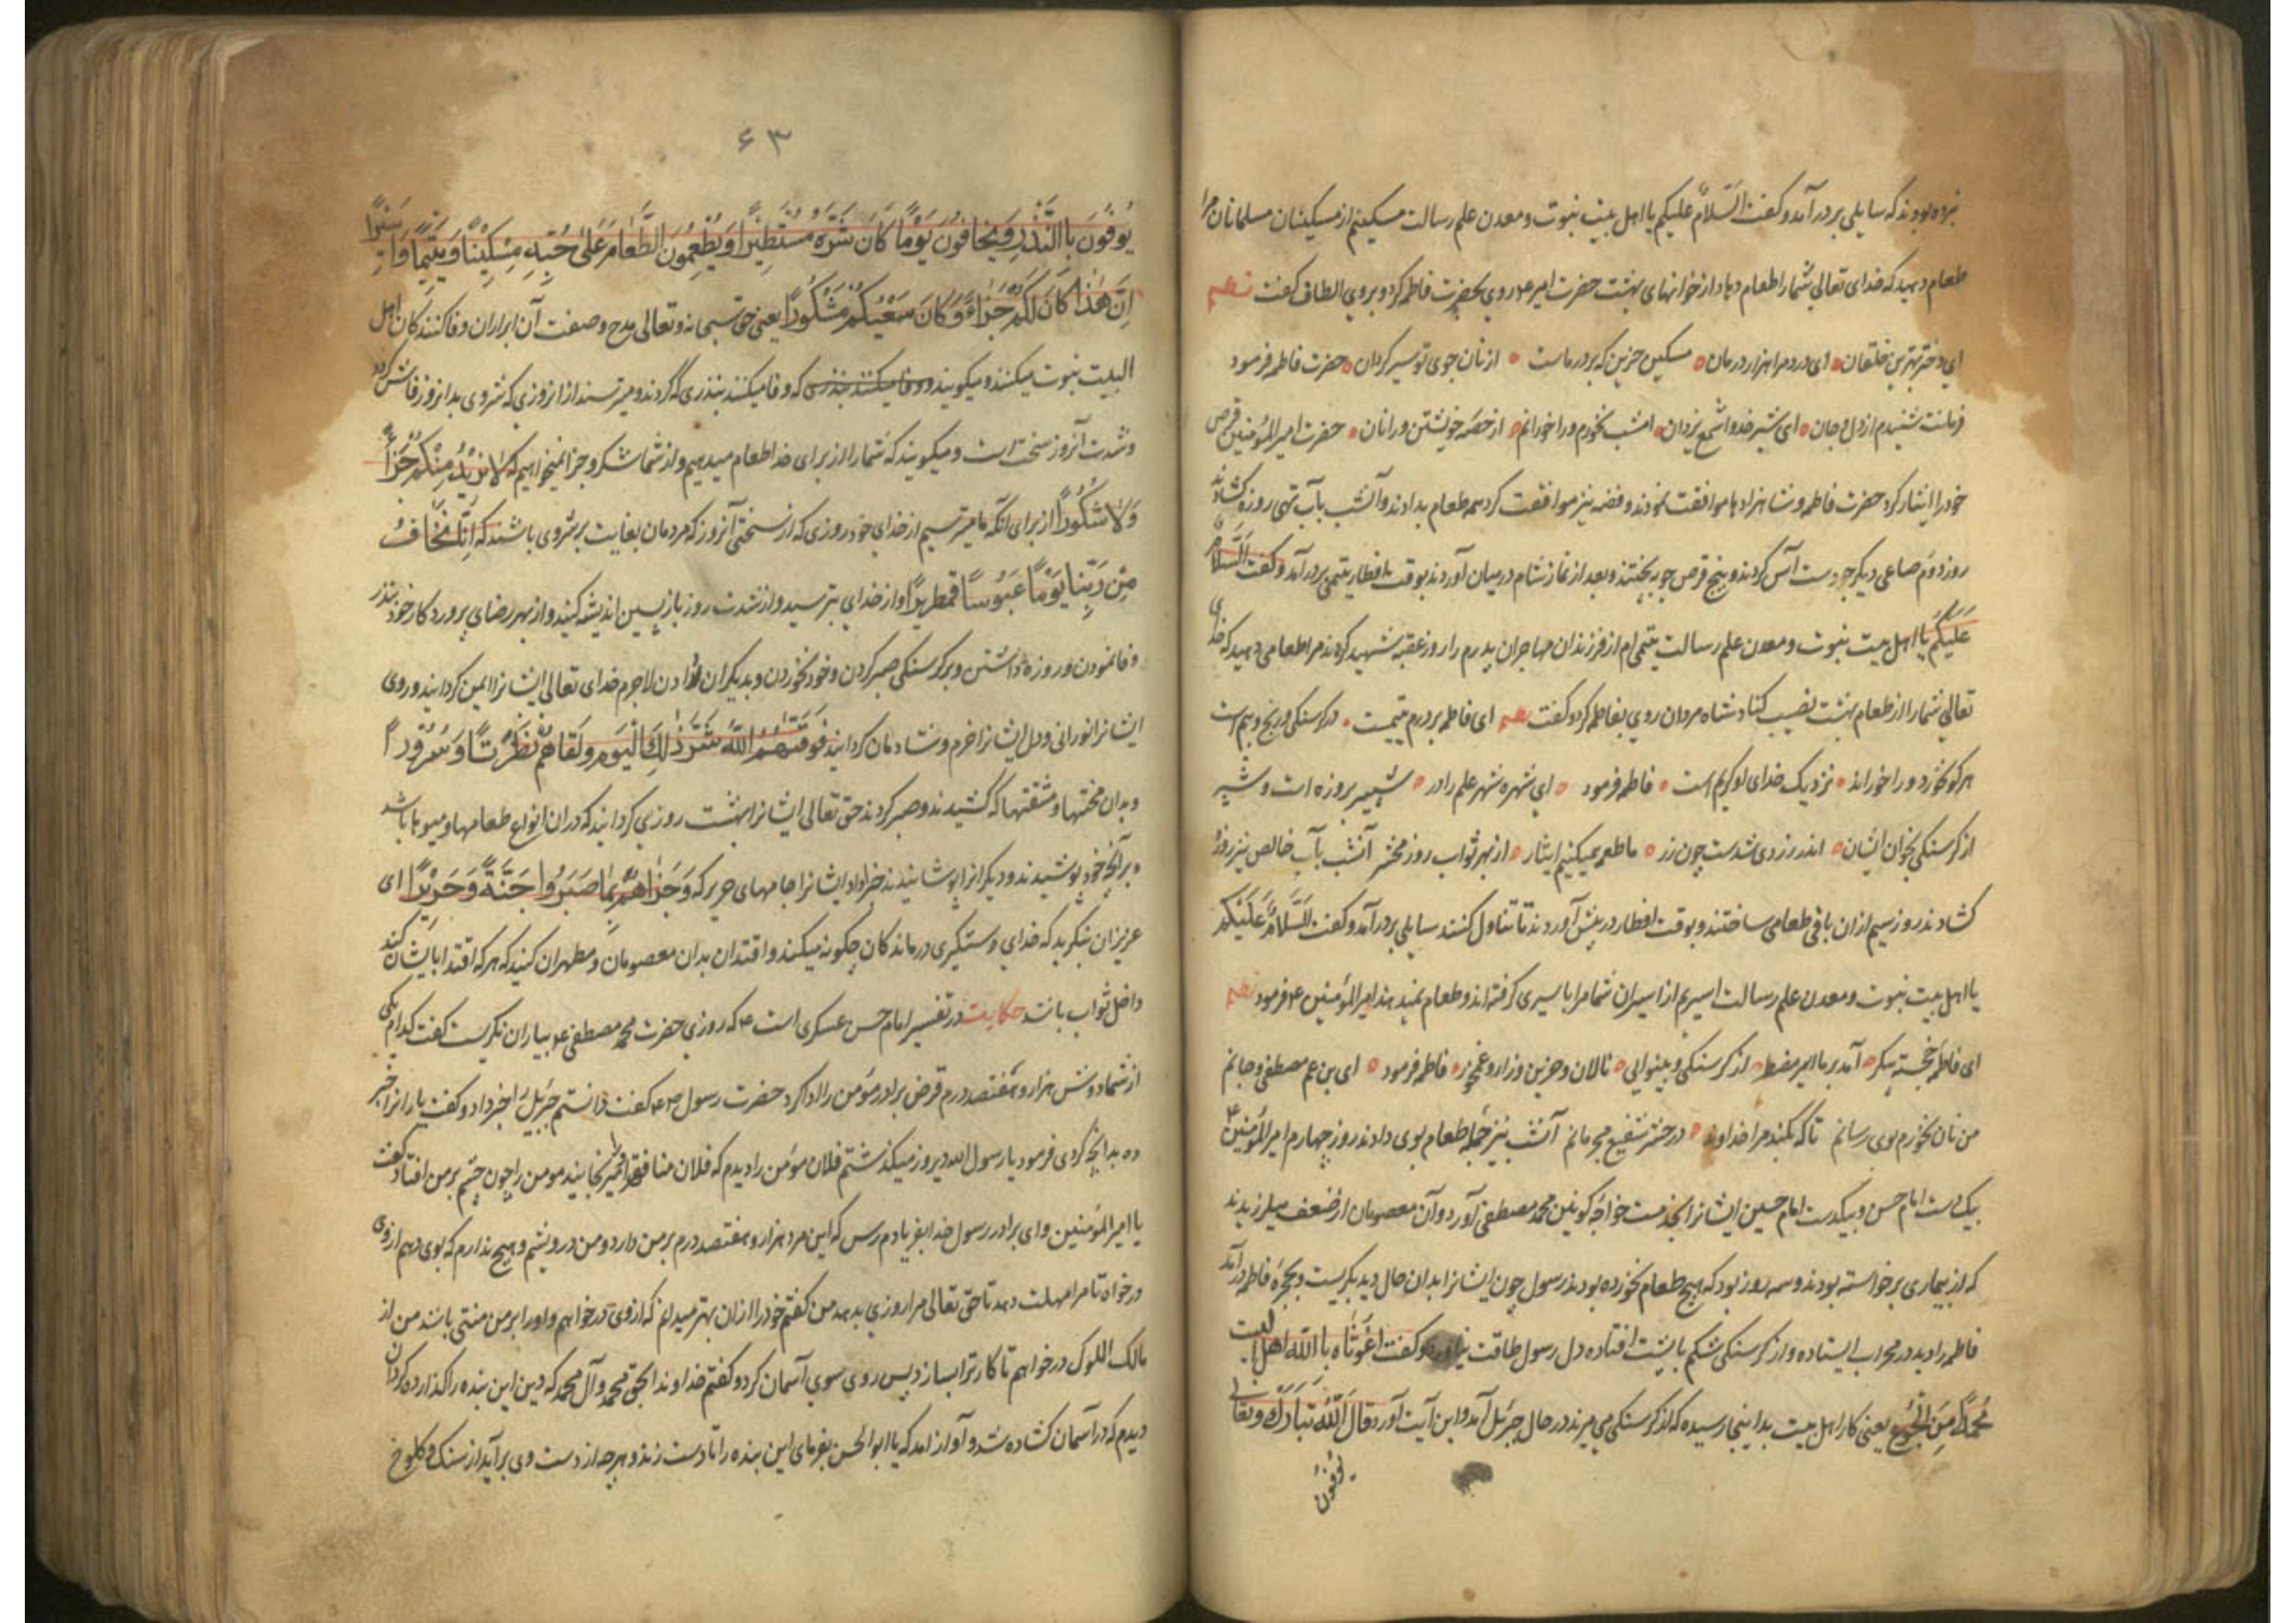 نبرده بودند که سایلی بر در آمد و کفت السَّلامُ علیکم یا اهل بیت نبوت و معدن علم رسالت مسکینم از مسکینان مسلمانان مرا
طعام دهید که خدای تعالی شما را طعام دهاد از خوانهای بهشت حضرت امیر ع روی بحضرت فاطمه کرد و بروی الطاف کفت نظم
ای دختر بهترین خلقان ای درد مرا هزار درمان مسکین حزین که بر در ماست از نان جوی تو سیر کردان حضرت فاطمه فرمود
فرمانت شنیدم از دل و جان ای شیر خدا و شمع یزدان امشب نخورم ورا خورانم از حصه خویشتن ورا نان حضرت امیر المؤمنین قرص
خود را ایثار کرد حضرت فاطمه و شاهزادها موافقت نمودند و فضه نیز موافقت کرد همه طعام بدادند و آنشب بآب تهی روزه کشادند
روز دوم صاعی دیکر جو دست آس کردند و پنج قرص جو بپختند و بعد از نماز شام در میان آوردند بوقت افطار یتیمی بر در آمد و کفت السَّلامُ
عَلَیکُم یا اهل بیت نبوت و معدن علم رسالت یتیمی ام از فرزندان مهاجران پدرم را روز عقبه شهید کردند مرا طعامی دهید که خدای
تعالی شما را از طعام بهشت نصیب کناد شاه مردان روی بفاطمه کرد و کفت نظم ای فاطمه بر درم یتیمست در کرسنکی و رنج و بیم است
هر کو نخورد ورا خوراند نزدیک خدای او کریم است فاطمه فرمود ای شهره شهر علم را در شبیر بروزه است و شبر
از کرسنکی بخوان ایشان اندر زردی شدست چون زر ما طعمه میکنیم ایثار از بهر ثواب روز محشر آنشب بآب خالص نیز روزه
کشادند روز سیم از ان باقی طعامی ساختند و بوقت افطار در پیش آوردند تا تناول کنند سایلی بر در آمد و کفت السَّلامُ عَلَیْکُمْ
یا اهل بیت نبوت و معدن علم رسالت اسیرم از اسیران شما مرا باسیری کرفته اند و طعام نمیدهند امیر المؤمنین ع فرمود نظم
ای فاطمه خجسته پیکر آمد بر ما اسیر مضطر از کرسنکی و بینوایی نالان و حزین و زار و غمخور فاطمه فرمود ای بن عم مصطفی و جانم
من نان نخورم بوی رسانم تا که نکند مرا خداوند در حشر شفیع مجرمانم آنشب نیز جمله طعام بوی دادند روز چهارم امیر المؤمنین ع
بیک دست امام حسن و بیکدست امام حسین ایشانرا بخدمت خواجه کونین محمد مصطفی آورد و آن معصومان از ضعف میلرزیدند
که از بیماری برخواسته بودند و سه روز بود که هیچ طعام نخورده بودند رسول چون ایشانرا بدان حال دید بکریست و بحجره فاطمه در آمد
فاطمه را دید در محراب ایستاده و از کرسنکی شکم با پشت افتاده دل رسول طاقت نیاورد و کفت اغوثاه باالله اهل بیت
مُحَمَّد مِنَ الجُوع یعنی کار اهل بیت بدا ینجا رسیده که از کرسنکی می میرند در حال جبرئیل آمد و این آیت آورد قالَ اللّهُ تَبارَکَ وَ تَعالی
یُوفُونَ
۶۳
یُوفُونَ باِالنَّذْرِ وَ یَخافُونَ یَوْماً کانَ شَرُّهُ مُسْتَطِیراً وَ یُطْعِمُونَ الطَّعامَ عَلی حُبِّهِ مِسْکِیناً وَ یَتِیماً وَ اَسِیراً
اِنَّ هٰذا کانَ لَکُمْ جَزاءً وَ کانَ سَعْیُکُمْ مَشْکُوراً یعنی حق سبحانه و تعالی مدح و صفت آن ابراران و وفا کنندکان اهل
البیت نبوت میکنند و میکویند و وفا میکنند بنذری که وفا میکنند بنذری که کردند و میترسند از ان روزی که شر وی بدانروز فاش کردد
و شدت آنروز سخت است و میکویند که شما را از برای خدا طعام میدهیم و از شما شکر و جزا نمیخواهیم که لا نُرِیدُ مِنْکُمْ جَزاءً
وَ لا شُکُوراً از برای آنکه ما میترسیم از خدای خود روزی که از سختی آنروز که مردمان بغایت برشروی باشند که اِنّا نَخافُ
مِنْ رَبِّنا یَوْماً عَبُوساً قَمْطَرِیراً و از خدای بترسید و از شدت روز بازپسین اندیشه کنید و از بهر رضای پروردکار خود نذر
وفا نمودن و روزه داشتن و بر کرسنکی صبر کردن و خود نخوردن و بدیکران دادن لاجرم خدای تعالی ایشانرا ایمن کردانید و روی
ایشانرا نورانی و دل ایشانرا خرم و شادمان کردانید فَوَقٰیهُمُ اللّهُ شَرَّ ذٰلِکَ الْیَوْمِ وَ لَقّاهُمْ نَضْرَتًا وَ سُرُوراً
و بدان محنتها و مشقتها که کشیدند و صبر کردند حق تعالی ایشانرا بهشت روزی کردانید که در ان انواع طعامها و میوها باشد
و بر آنچه خود پوشیدند و دیکرانرا پوشانیدند جزا داد ایشانرا جامهای حریر که وَ جَزاهُمْ بِما صَبَرُوا جَنَّةً وَ حَرِیراً ای
عزیزان بنکرید که خدای دستکیری درماندکان چکونه میکند و اقتدا بدان معصومان و مطهران کنید که هر که اقتدا بایشان کند
داخل ثواب باشد حکایت در تفسیر امام حسن عسکری است ع که روزی حضرت محمد مصطفی ص بیاران نکریست کفت کدام یکی
از شما دوش هزار و هفتصد درم قرض برادر مؤمن را ادا کرد حضرت رسول ص کفت دانستم جبرئیل را خبر داد و کفت یارانرا خبر
ده بدانچه کردی فرمود یا رسول الله دیروز میکذشتم فلان مؤمن را دیدم که فلان منافق او را میرنجانید مومن را چون چشم بر من افتاد کفت
یا امیر المؤمنین و ای برادر رسول خدا بفریادم رس که این مرد هزار و هفتصد درم بر من دارد و من درویشم و هیچ ندارم که بوی دهم از وی
درخواه تا مرا مهلت دهد تا حق تعالی مرا روزی بدهد من کفتم خود را از ان بهتر میدانم که از وی درخواهم و او را بر من منتی باشد من از
مالک الملوک درخواهم تا کار ترا بسازد پس روی سوی آسمان کرد و کفتم خداوندا بحق محمد و آل محمد که دین این بنده را کذارده کردان
دیدم که در آسمان کشاده شد و آواز آمد که یا ابوالحسن بفرمای این بنده را تا دست زند و هر چه از دست وی برآید از سنک و کلوخ